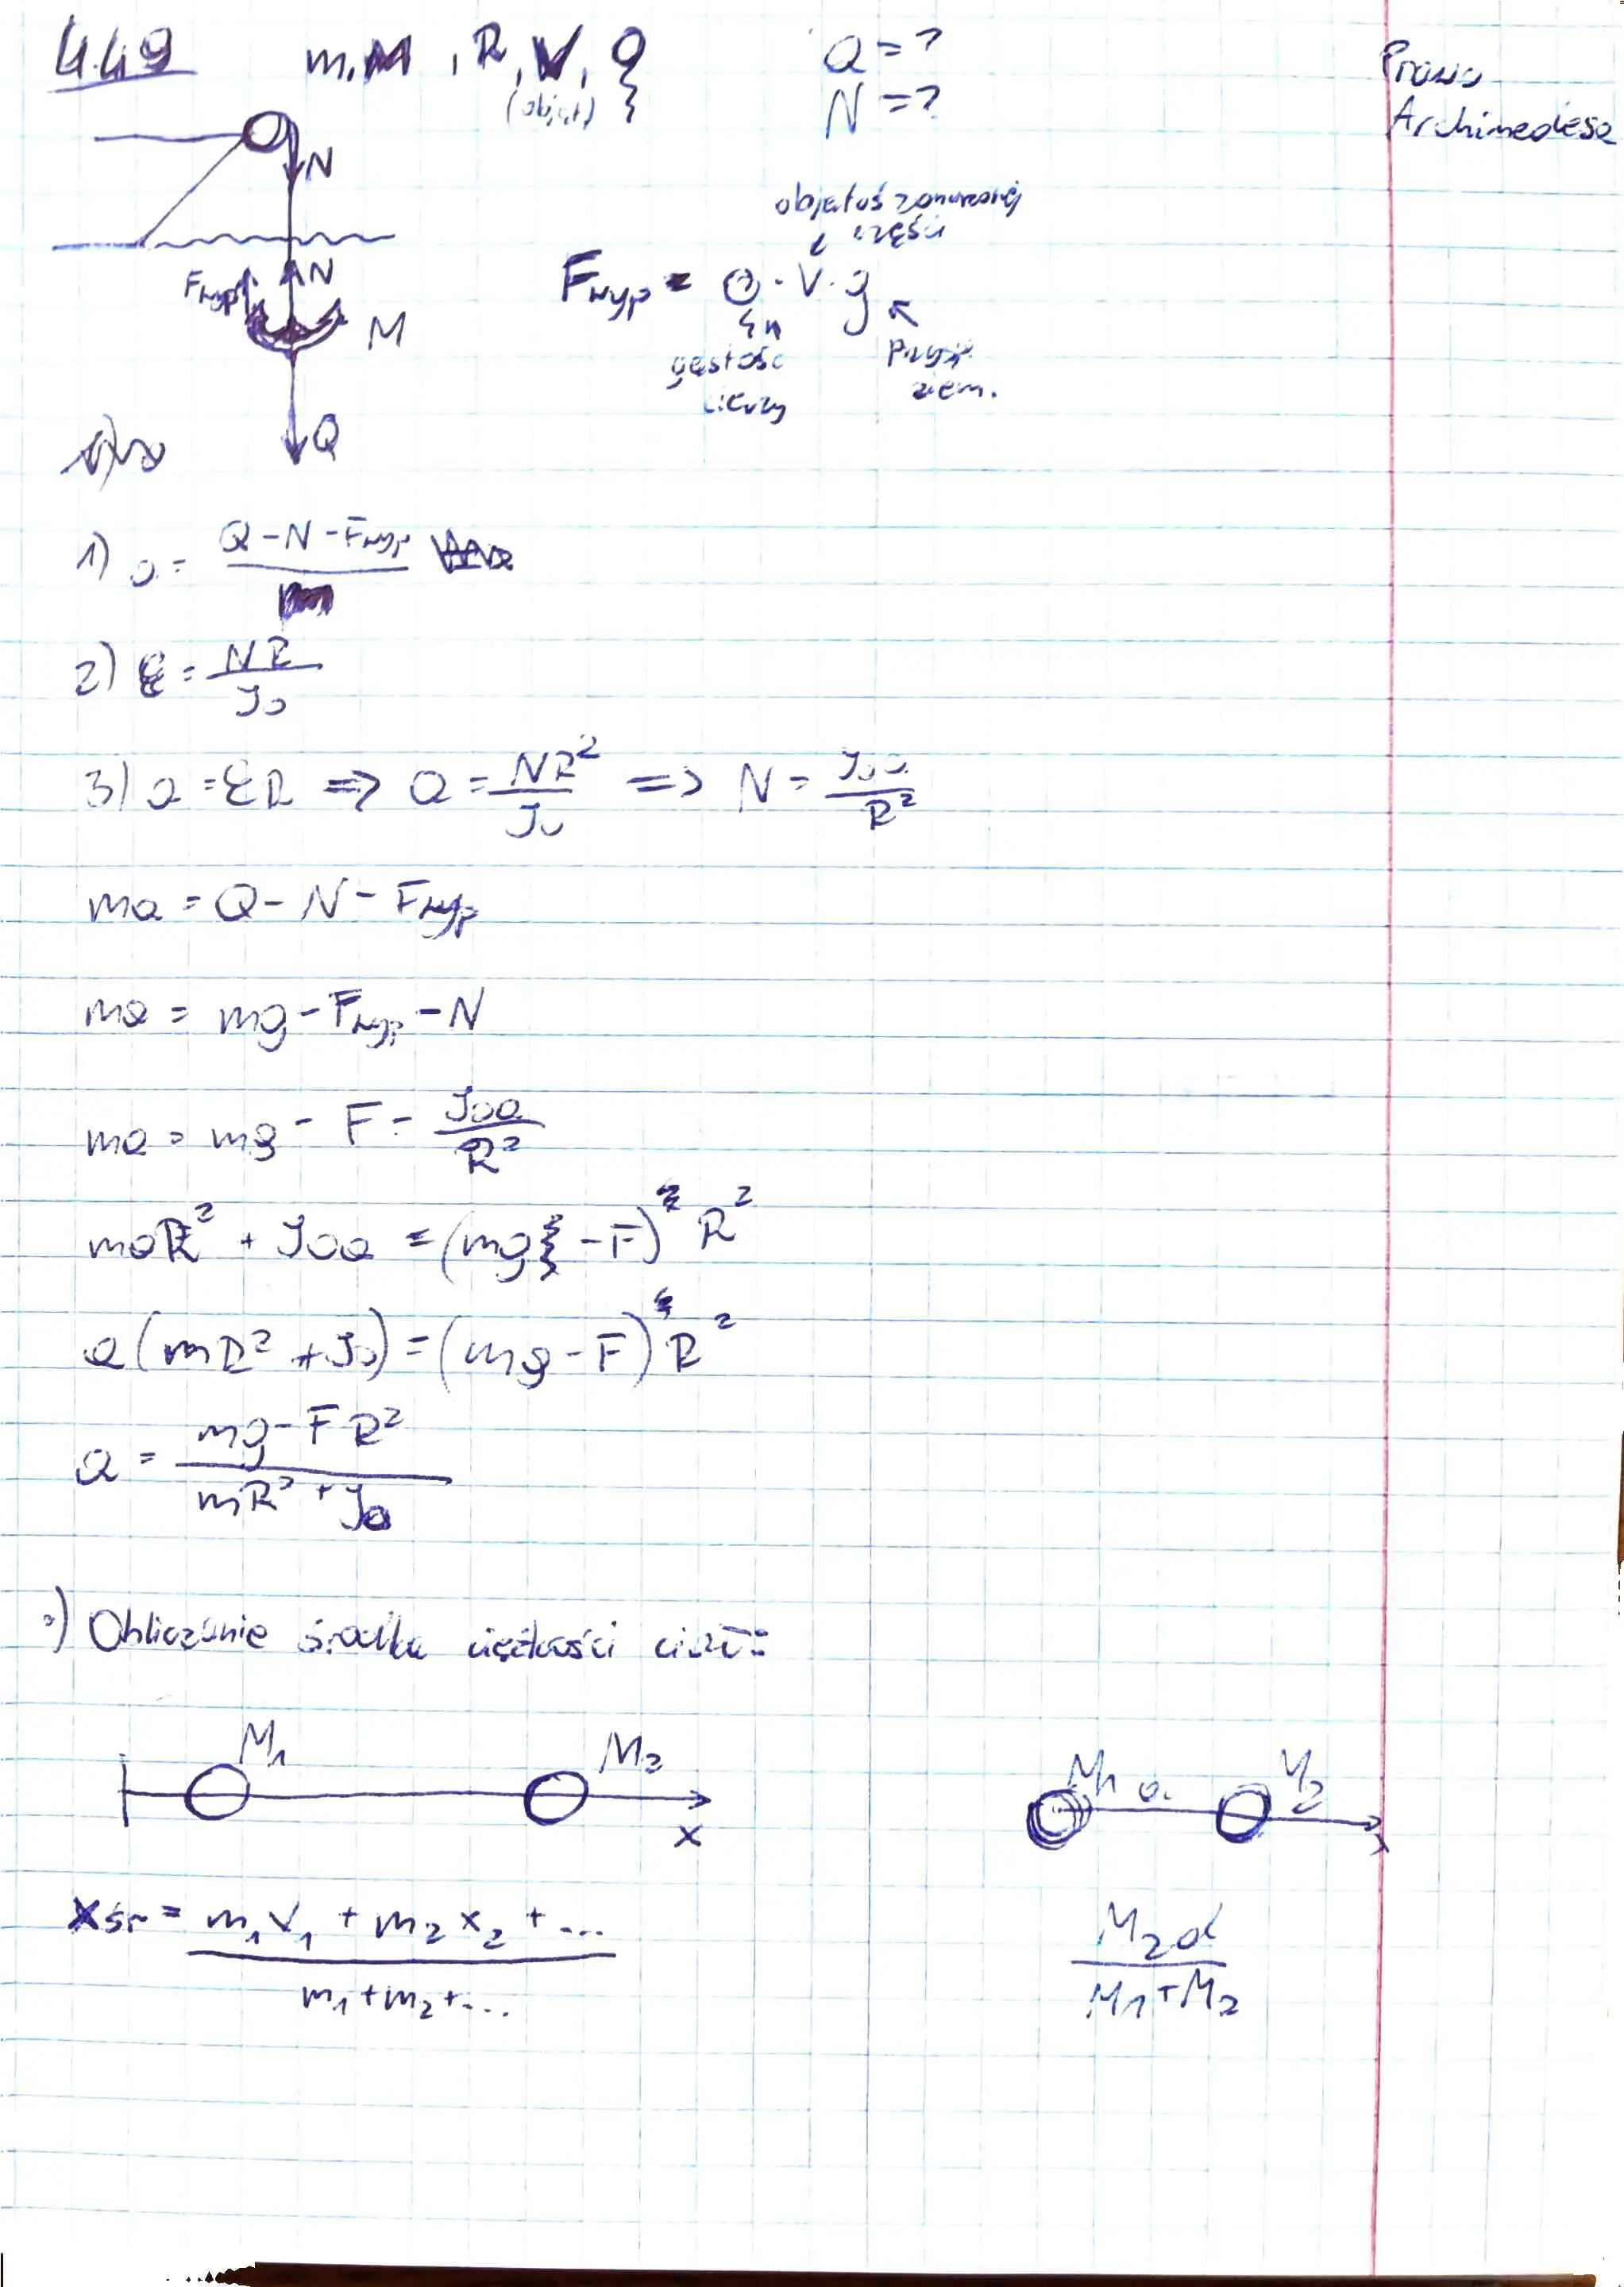 4.49 m, M, R, V, ϱ a = ?
(objęt) N = ?
Prawo
Archimedesa
N
objętość zanurzonej
części
Fwyp N
Fwyp = ϱ · V · g
M
gęstość
cieczy
przysp.
ziem.
Q
1) a = (Q - N - Fwyp) / m
2) ε = NR / J₀
3) a = εR => a = NR² / J₀ => N = J₀a / R²
ma = Q - N - Fwyp
ma = mg - Fwyp - N
ma = mg - F - J₀a / R²
maR² + J₀a = (mg - F) R²
a (mR² + J₀) = (mg - F) R²
a = (mg - F R²) / (mR² + J₀)
Obliczanie środka ciężkości ciał:
M₁ M₂
x
M₁ a M₂
x
xśr = (m₁x₁ + m₂x₂ + ...) / (m₁ + m₂ + ...)
M₂d / (M₁ + M₂)